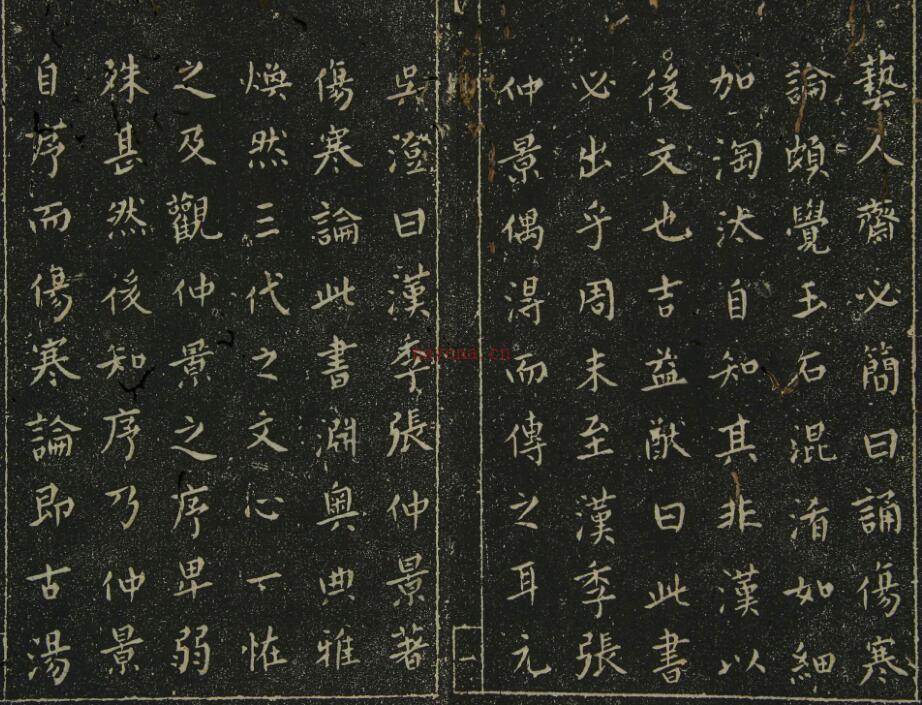 藝人齋必簡曰誦傷寒
論頗覺玉石混淆如細
加淘汰自知其非漢以
後文也吉益猷曰此書
必出乎周末至漢季張
仲景偶得而傳之耳元
吳澄曰漢季張仲景著
傷寒論此書淵奧典雅
煥然三代之文心一恠
之及觀仲景之序卑弱
殊甚然後知序乃仲景
自序而傷寒論即古湯
一